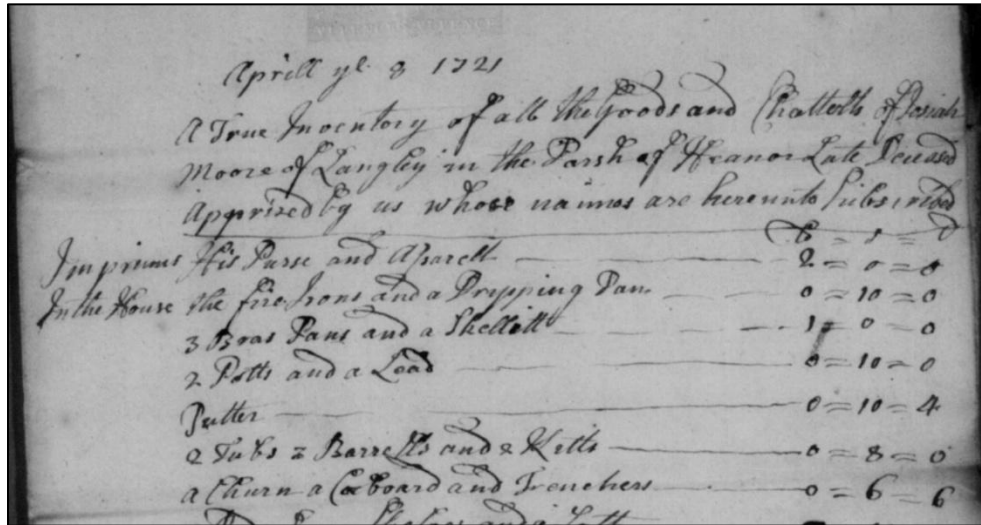 Aprill ye 8 1721
A True Inventory of all the Goods and Chattells of Josiah
Moore of Langley in the Parsh of Heanor Late Deceased
Apprized by us whose naimes are hereunto Subscribed
£ = s = d
Imprimus His Purse and Aparell — 2 = 0 = 0
In the House the fire Irons and a Dripping Pan — 0 = 10 = 0
3 Bras Pans and a Skellett — 1 = 0 = 0
2 Potts and a Lead — 0 = 10 = 0
Putter — 0 = 10 = 4
2 Tubs 2 Barrells and 2 Kitts — 0 = 8 = 0
a Churn a Coboard and Trenchers — 0 = 6 = 6